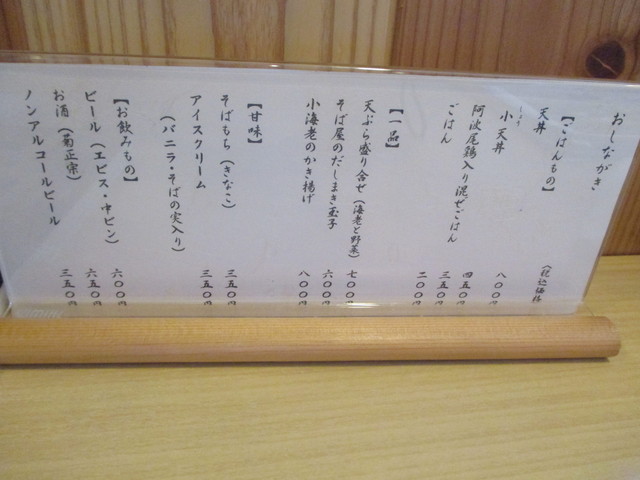 おしながき
【ごはんもの】 (税込価格)
天丼 八〇〇円
小天丼 四五〇円
阿波尾鶏入り混ぜごはん 三五〇円
ごはん 二〇〇円
【一品】
天ぷら盛り合せ(海老と野菜) 七〇〇円
そば屋のだしまき玉子 六〇〇円
小海老のかき揚げ 八〇〇円
【甘味】
そばもち(きなこ) 三五〇円
アイスクリーム 三五〇円
(バニラ・そばの実入り)
【お飲みもの】
ビール(エビス・中ビン) 六〇〇円
お酒(菊正宗) 六五〇円
ノンアルコールビール 三五〇円